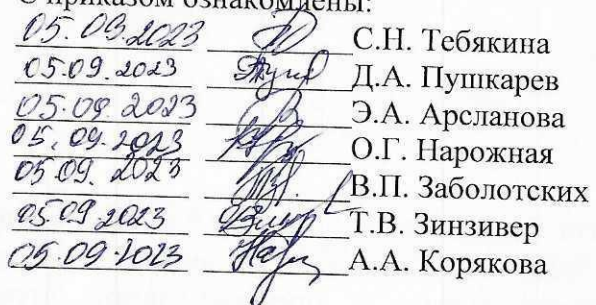 С приказом ознакомлены:
05.09.2023 С.Н. Тебякина
05.09.2023 Д.А. Пушкарев
05.09.2023 Э.А. Арсланова
05.09.2023 О.Г. Нарожная
05.09.2023 В.П. Заболотских
05.09.2023 Т.В. Зинзивер
05.09.2023 А.А. Корякова